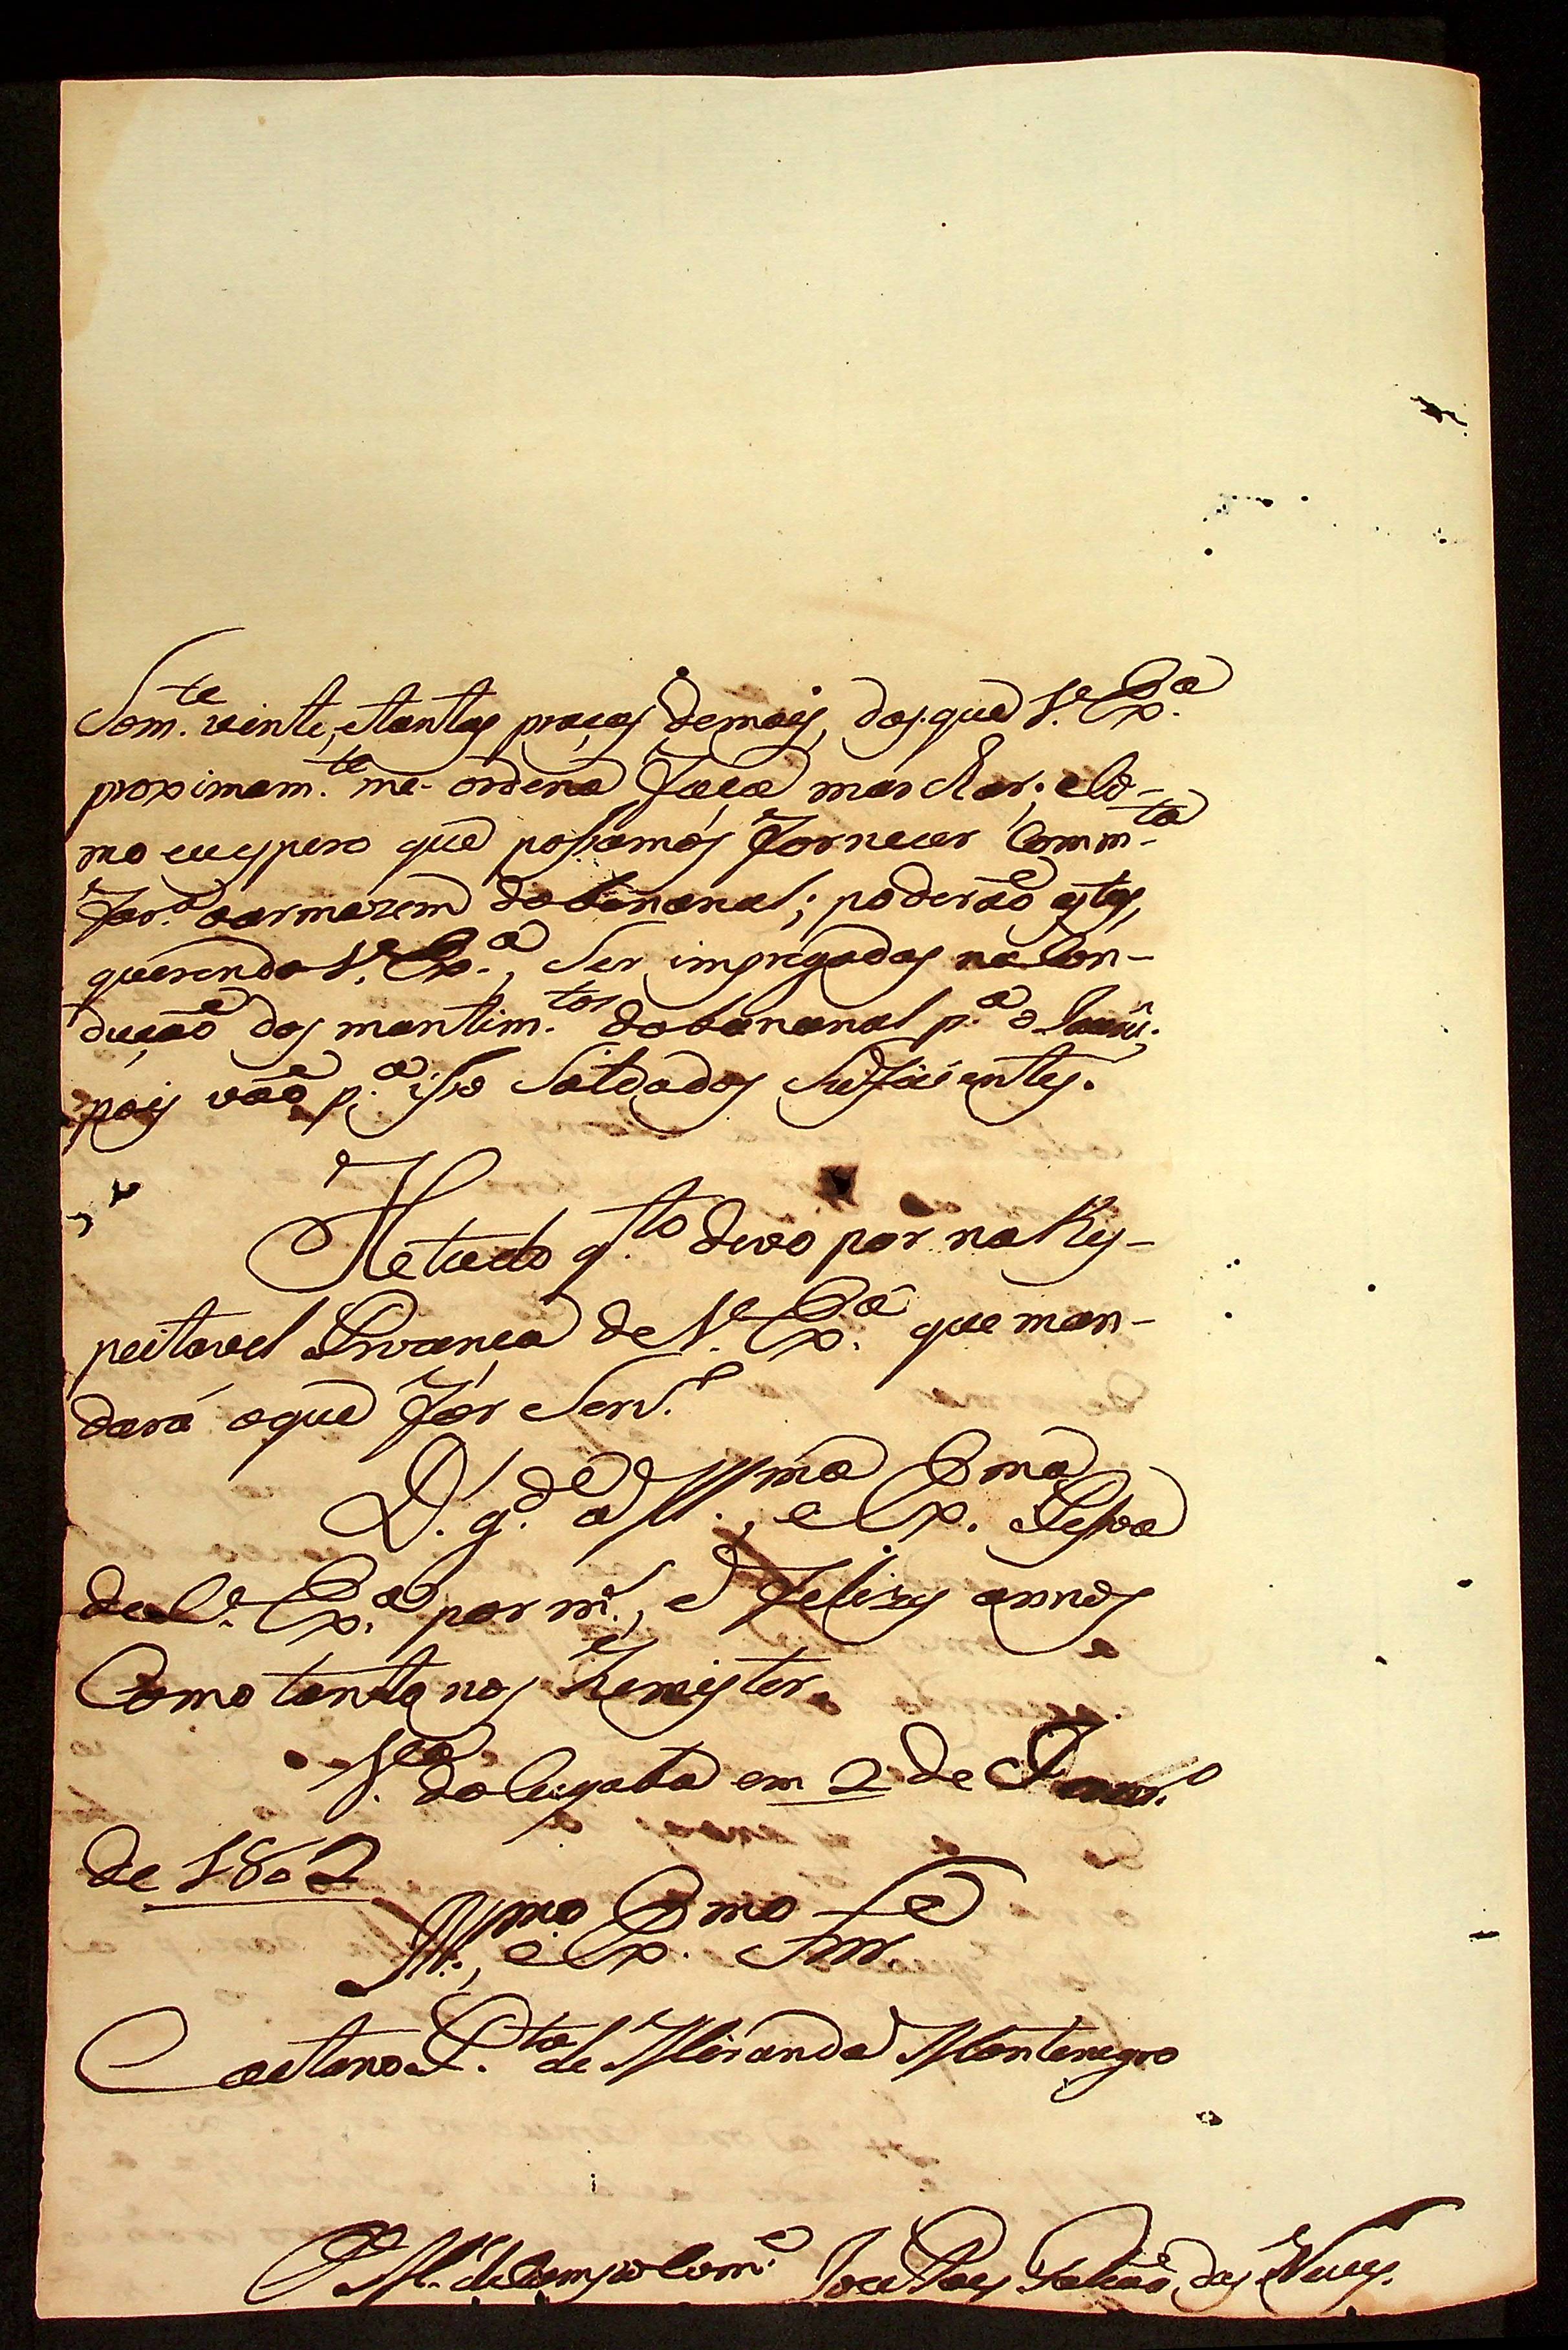 Som.te vinte, e tantas praças demais, dos que V.ª Ex.ª
proximam.te me ordena faça marchar; e Co-
mo eu espero que possamos fornecer Com m.ta
far.ª o armazem do bananal; poderão estes,
querendo V.ª Ex.ª, Ser impregados na Con-
dução dos mantim.tos do bananal p.ª o Jaurú,
pois vão p.ª isso Soldados Suficientes.
He tudo q.to devo por na Res-
peitavel Prezença de V.ª Ex.ª que man-
dará o que for Serv.º
D.s g.de a Ill.ma, e Ex.ma Pessoa
de V.ª Ex.ª por m.s, e felizes annos
Como tanto nos he mister.
V.ª do Cuyabá em 2 de Janr.º
de 1802
Ill.mo, e Ex.mo Snr
Caetano P.to de Miranda Montenegro
O M.e de Campo Com.e Joze Paes Falcão das Neves.